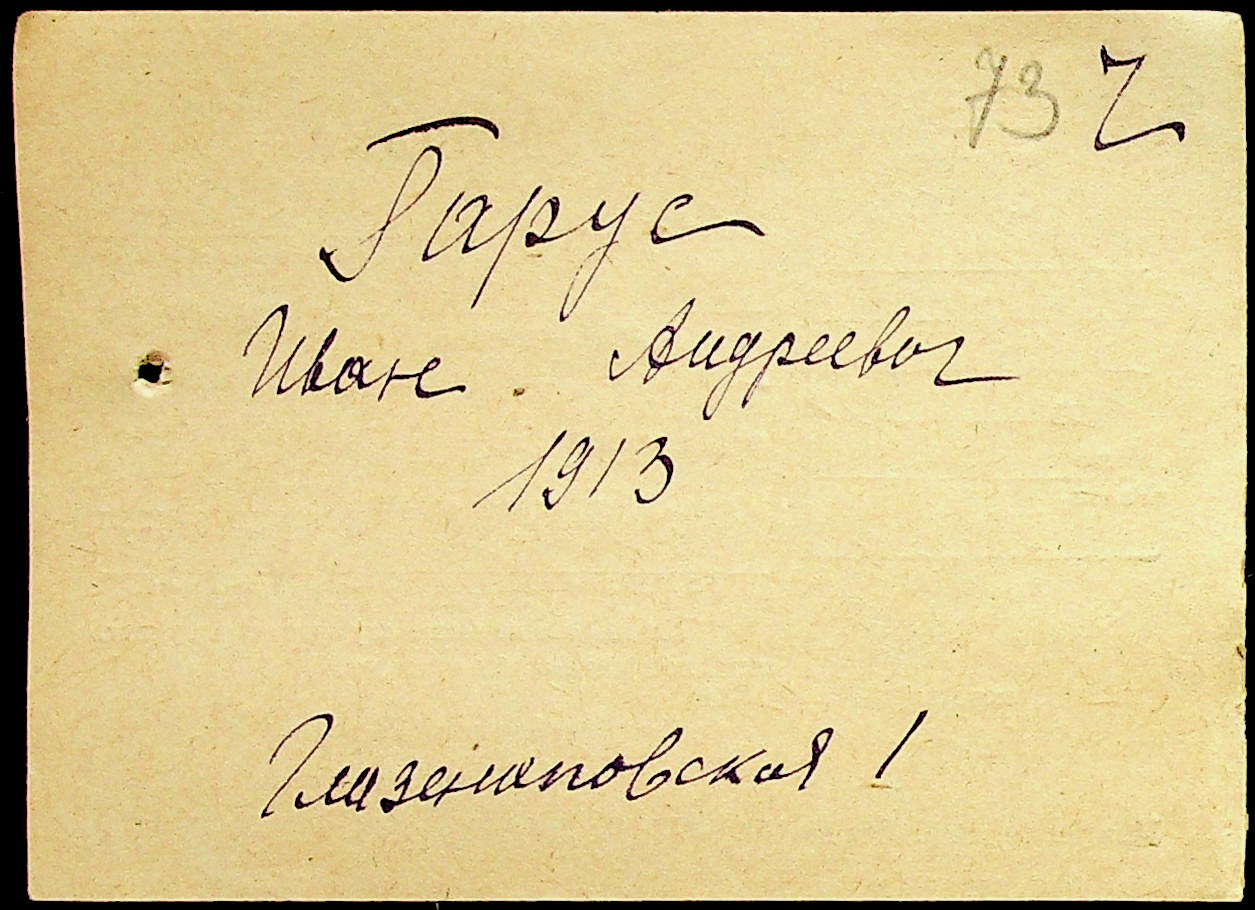 73 Ч
Гарус
Иван Андреевич
1913
Глазенаповская 1